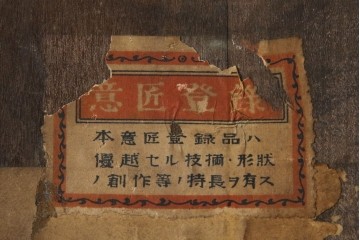 意匠登録
本意匠登録品ハ
優越セル技術・形狀
ノ創作等ノ特長ヲ有ス